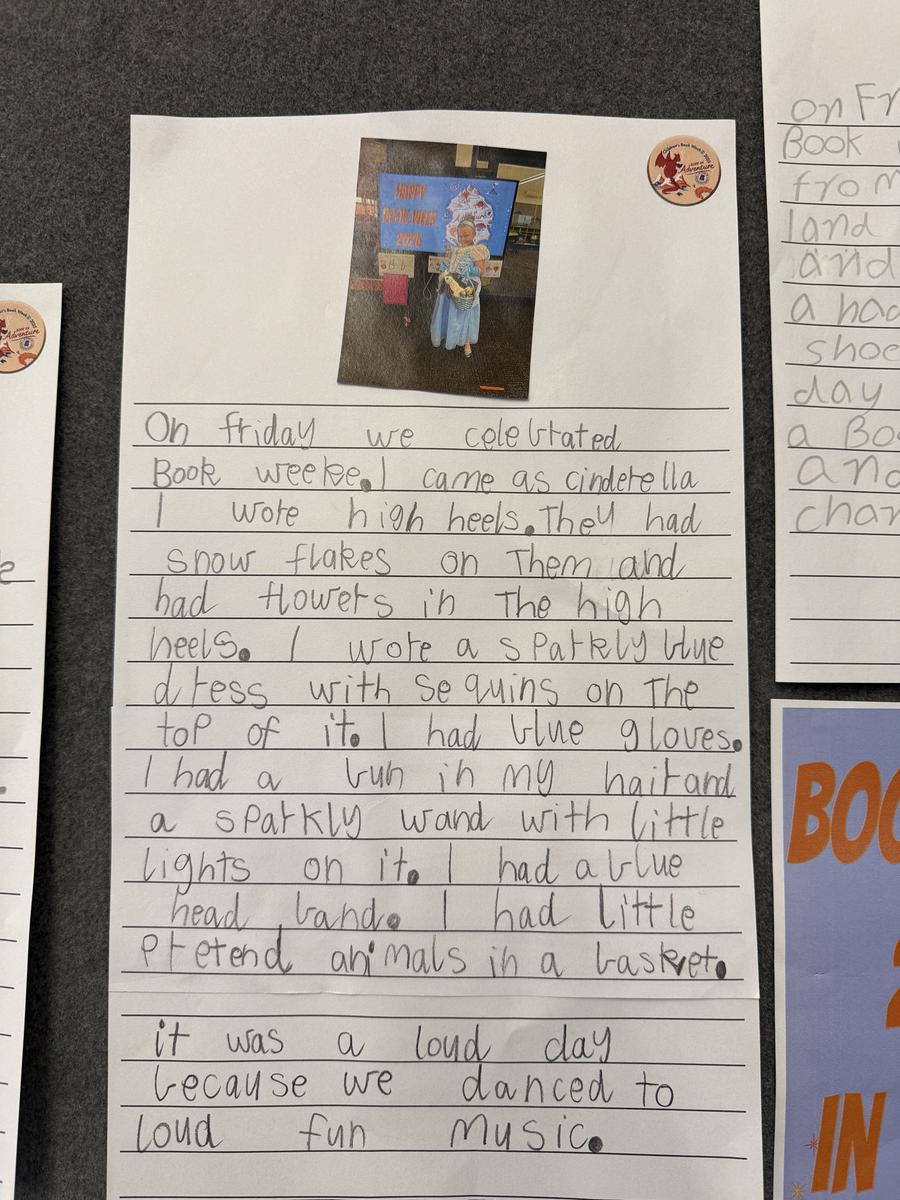 HAPPY
BOOK WEEK
2025
Book of
Adventure
On friday we celebrated
Book weeke. I came as cinderella
I wore high heels. They had
snow flakes on Them and
had flowers in The high
heels. I wore a sparkly blue
dress with sequins on The
top of it. I had blue gloves.
I had a bun in my hair and
a sparkly wand with little
lights on it. I had a blue
head band. I had little
Pretend animals in a basket.
it was a loud day
because we danced to
loud fun music.
Adventure
on Fr
Book
from
land
and
a had
shoe
day
a Bo
and
char
BOO
2
IN